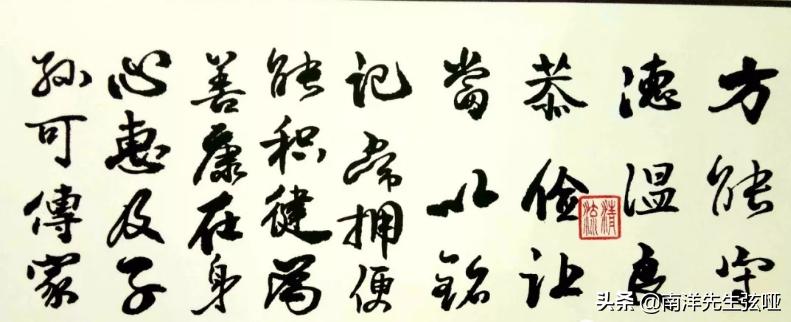 方能守
德温良
恭俭让
當以铭
记常拥便
能积健為
善康在身
心惠及子
孙可傳家
清流
头条 @南洋先生弦哑